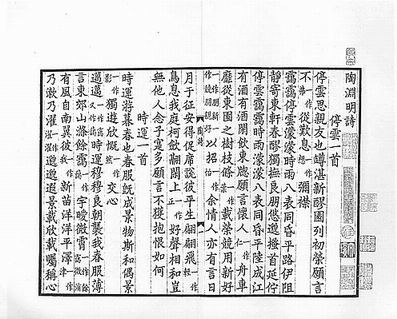 陶淵明詩
停雲一首
停雲思親友也罇湛新醪園列初榮願言
不一作弗從歎息一作想彌襟
靄靄停雲濛濛時雨八表同昏平路伊阻
靜寄東軒春醪獨撫良朋悠邈搔首延佇
停雲靄靄時雨濛濛八表同昏平陸成江
有酒有酒閒飲東牕願言懷人一作仁舟車
靡從東園之樹枝條載榮競用新好
以招一作怡余情人亦有言日
月于征安得促席說彼平生翩翩飛一作輕
鳥息我庭柯斂翮閒止好聲相和豈
無他人念子寔多願言不獲抱恨如何
時運一首
時運游暮春也春服既成景物斯和偶景
一作影獨遊欣慨交心
邁邁時運穆穆良朝襲我春服薄
言東郊山滌餘靄宇曖微霄
有風自南翼彼新苗洋洋平澤
乃漱乃濯邈邈遐景載欣載矚稱心